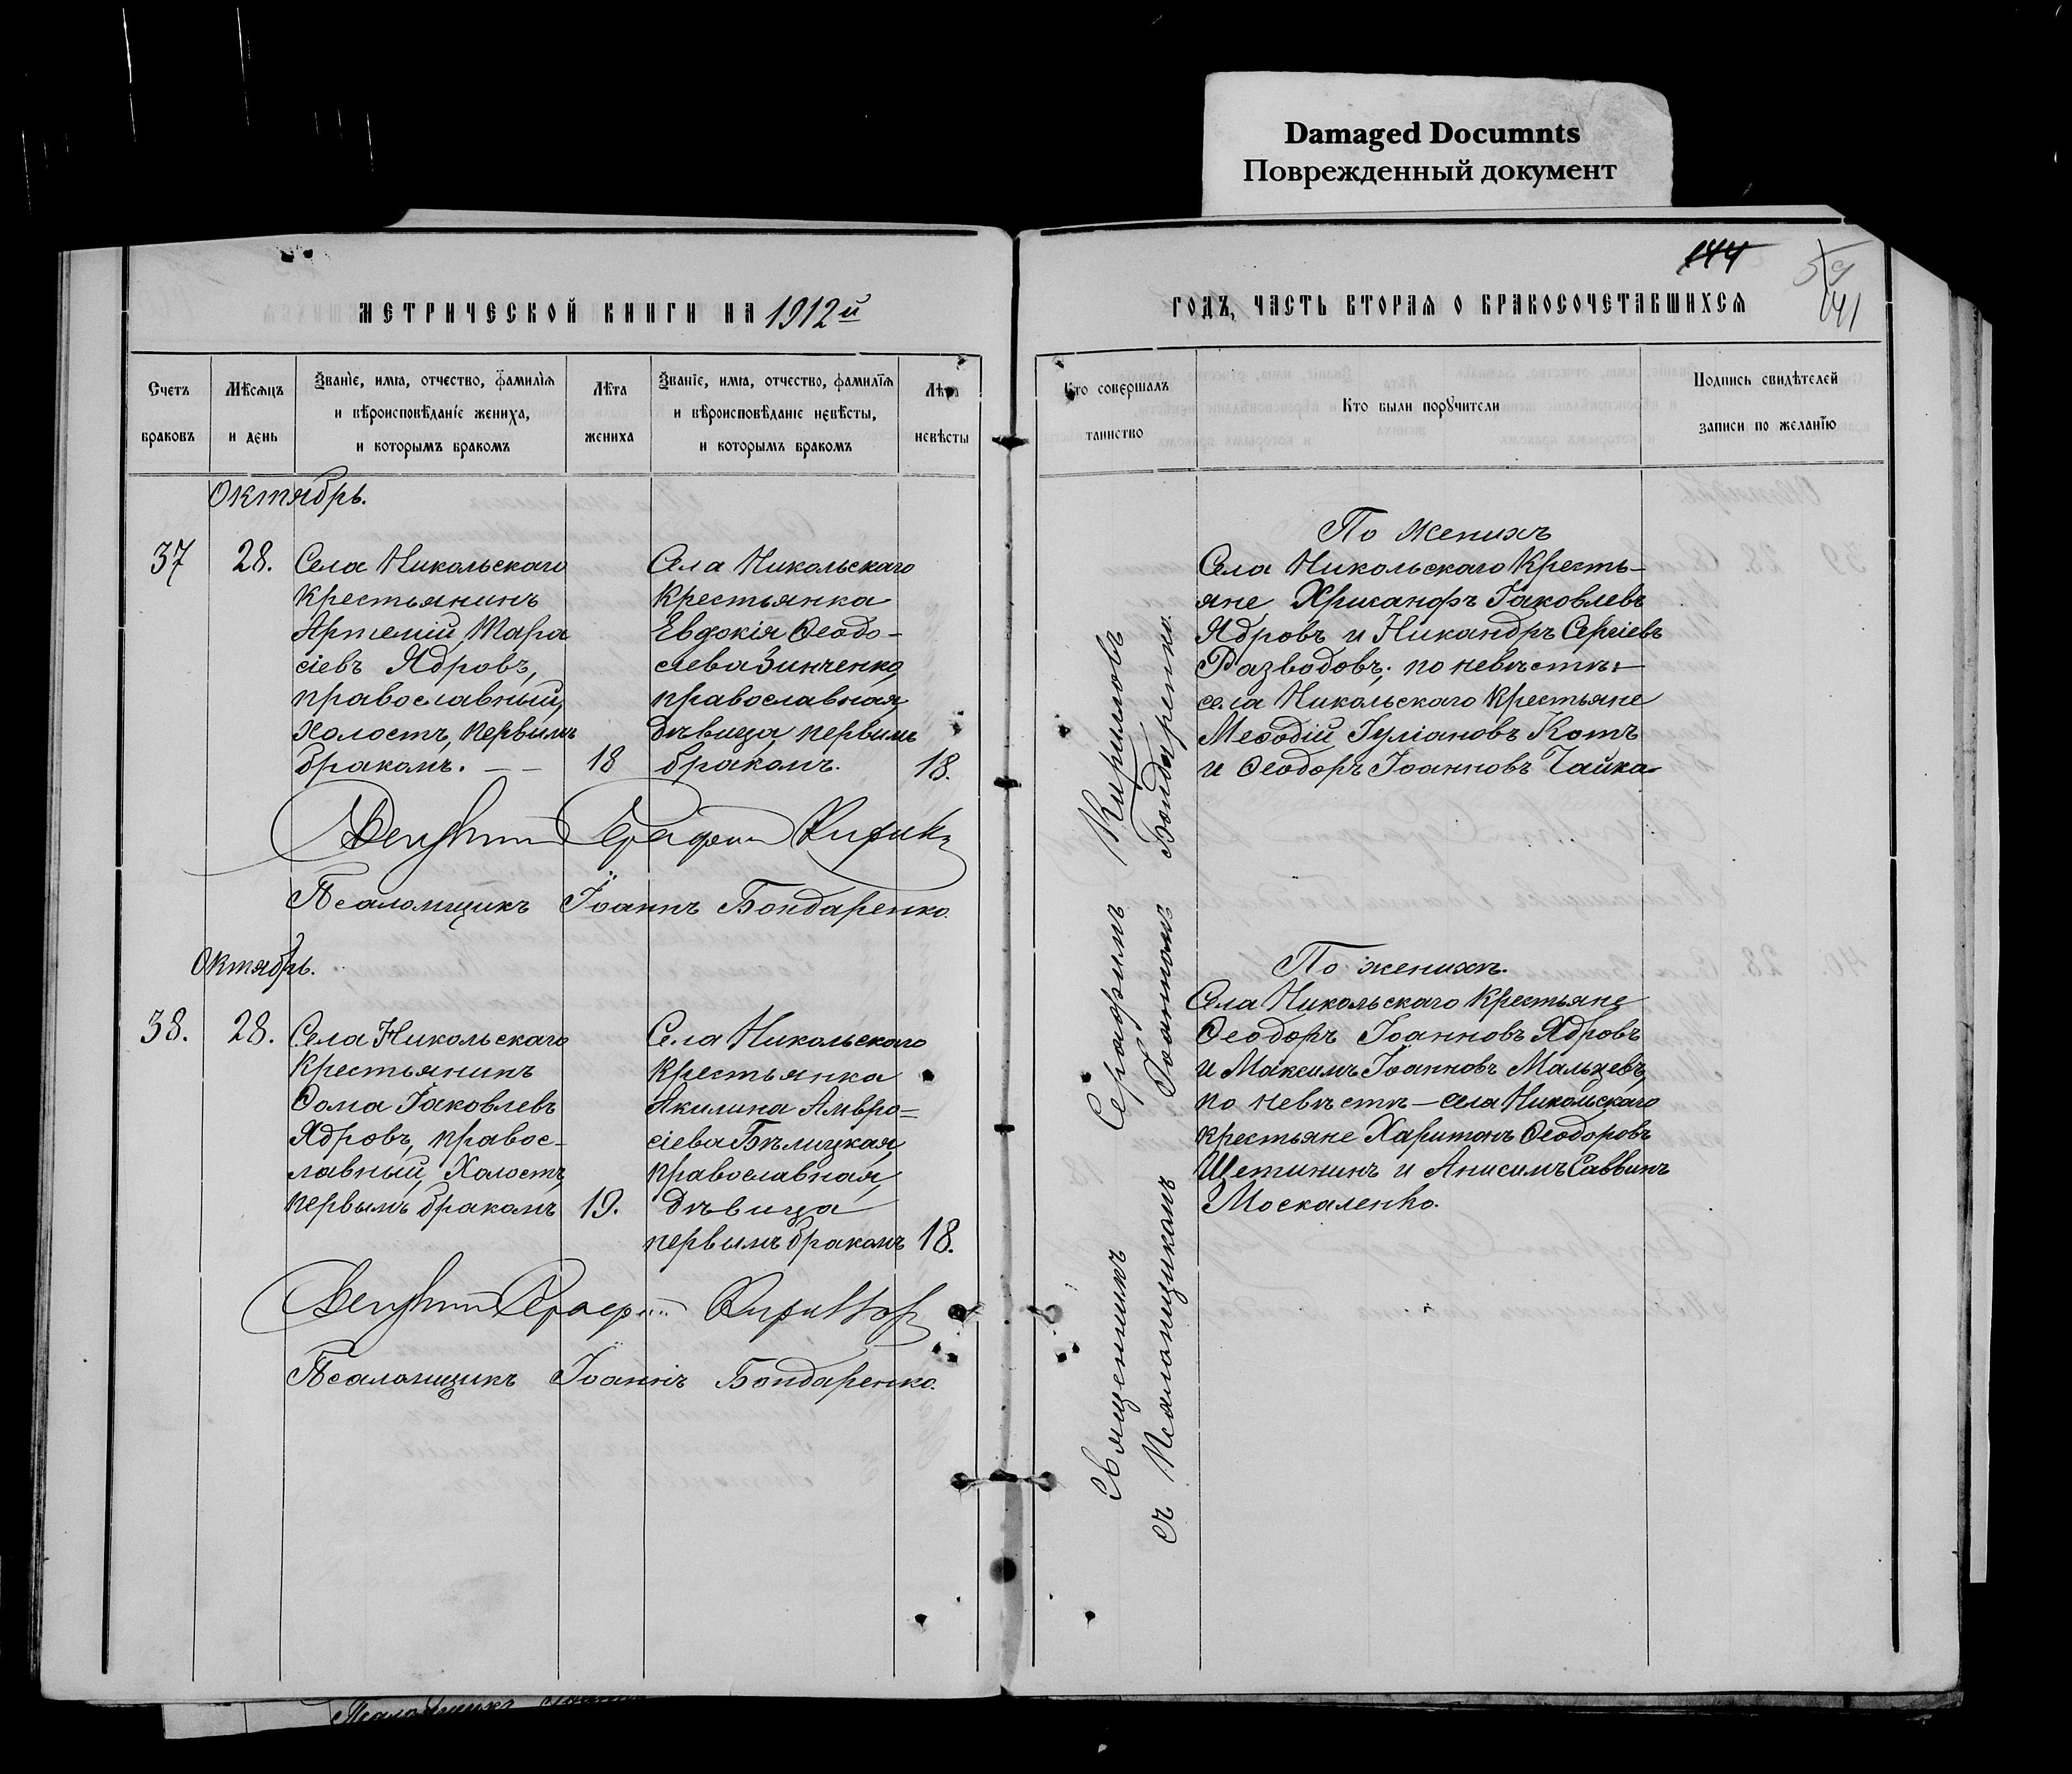 Damaged Documnts
Поврежденный документ
144
59
141
МЕТРИЧЕСКОЙ КНИГИ НА 1912й
ГОДЪ, ЧАСТЬ ВТОРАЯ О БРАКОСОЧЕТАВШИХСЯ
Счетъ
браковъ
Мѣсяцъ
и день
Званіе, имя, отчество, фамилія
и вѣроисповѣданіе жениха,
и которымъ бракомъ
Лѣта
жениха
Званіе, имя, отчество, фамилія
и вѣроисповѣданіе невѣсты,
и которымъ бракомъ
Лѣта
невѣсты
Кто совершалъ
таинство
Кто были поручители
Подпись свидѣтелей
записи по желанію
Октябрь.
37
28.
Села Никольскаго
крестьянинъ
Артемій Тара
сіевъ Ядровъ,
православный,
холостъ, первымъ
бракомъ. — —
18
Села Никольскаго
крестьянка
Евдокія Ѳеодо-
сіева Зинченко,
православная,
дѣвица, первымъ
бракомъ.
18.
Священникъ Серафимъ
Псаломщикъ Іоаннъ Бондаренко.
Октябрь.
38.
28.
Села Никольскаго
крестьянинъ
Ѳома Іаковлевъ
Ядровъ, правос-
лавный, холостъ,
первымъ бракомъ
19.
Села Никольскаго
крестьянка
Акилина Амвро=
сіева Бѣлицкая,
православная,
дѣвица
первымъ бракомъ
18.
Священникъ Серафимъ Кирилловъ
Псаломщикъ Іоаннъ Бондаренко.
Священникъ Серафимъ Кирилловъ
съ Псаломщикомъ Іоанномъ Бондаренко.
По женихѣ
Села Никольскаго кресть-
яне Хрисанфъ Іаковлевъ
Ядровъ и Никандръ Сергіевъ
Разводовъ; по невѣстѣ:—
села Никольскаго крестьяне
Меѳодій Іуліановъ Котъ
и Ѳеодоръ Іоанновъ Чайка
По женихѣ.
Села Никольскаго крестьяне
Ѳеодоръ Іоанновъ Ядровъ
и Максимъ Іоанновъ Мальцевъ,
по невѣстѣ — села Никольскаго
крестьяне Харитонъ Ѳеодоровъ
Щетининъ и Анисимъ Саввинъ
Москаленко.